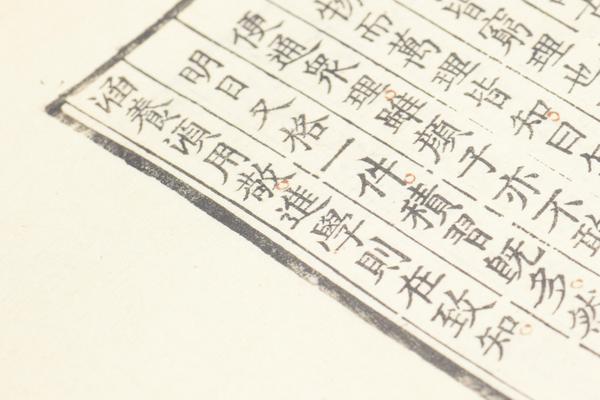 皆窮理
物而萬理皆知曰
便通衆理雖顏子亦不敢
明日又格一件積習既多然
涵養湏用敬進學則在致知